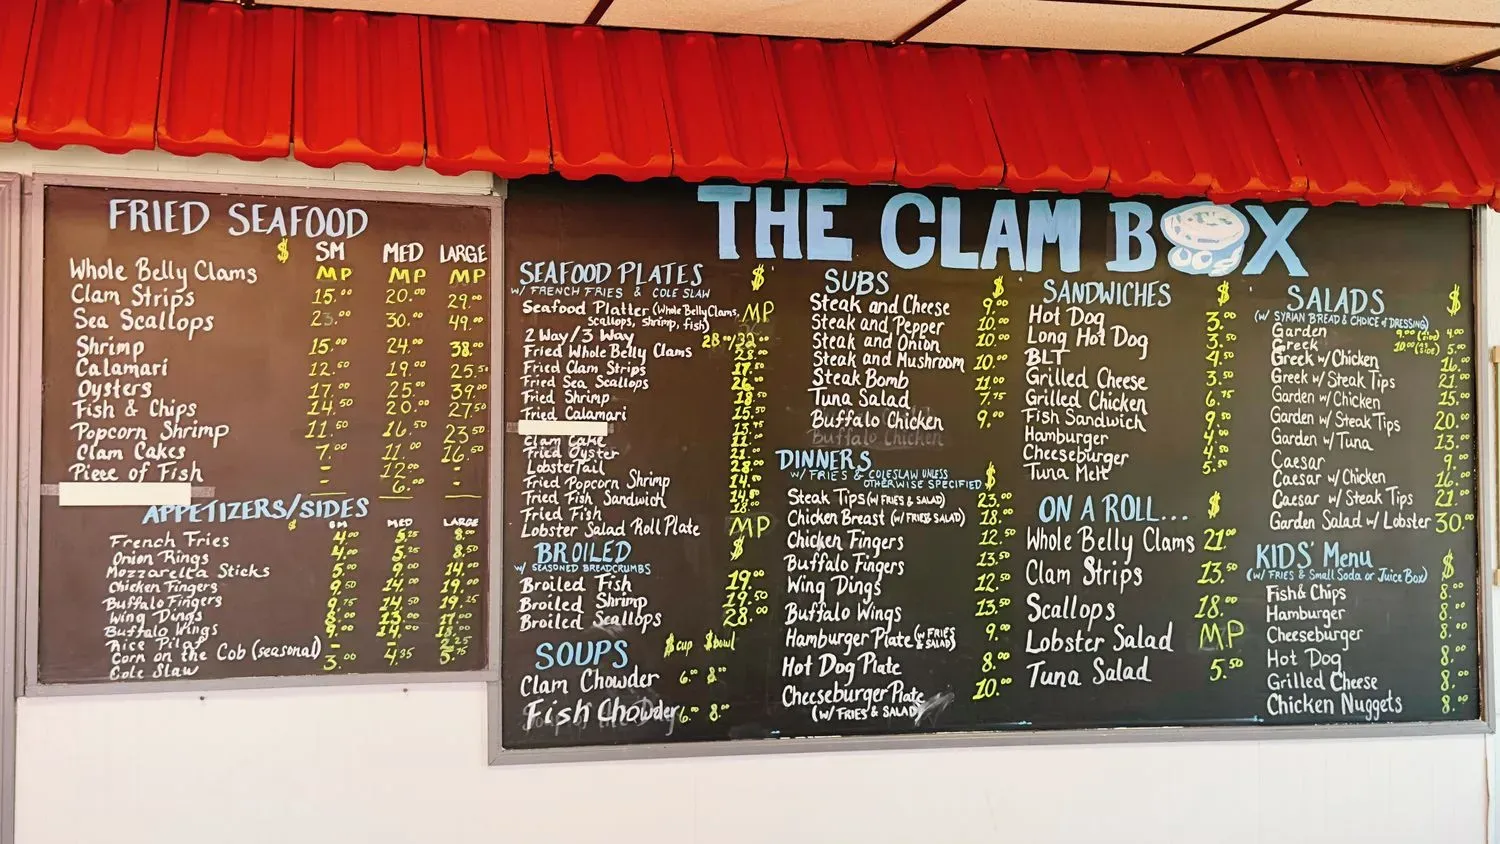 THE CLAM BOX
FRIED SEAFOOD
$ SM MED LARGE
Whole Belly Clams MP MP MP
Clam Strips 15.00 20.00 29.00
Sea Scallops 23.00 30.00 49.00
Shrimp 15.00 24.00 38.00
Calamari 12.50 19.00 25.50
Oysters 17.00 25.00 39.00
Fish & Chips 14.50 20.00 27.50
Popcorn Shrimp 11.50 16.50 23.50
Clam Cakes 7.00 11.00 16.50
Piece of Fish - 12.00 -
- 6.00 -
APPETIZERS/SIDES
$ SM MED LARGE
French Fries 4.00 5.25 8.00
Onion Rings 4.00 5.25 8.50
Mozzarella Sticks 5.00 9.00 14.00
Chicken Fingers 9.50 14.00 19.00
Buffalo Fingers 9.75 14.50 19.25
Wing Dings 8.00 13.00 17.00
Buffalo Wings 9.00 14.00 18.00
Rice Pilaf - - 2.25
Corn on the Cob (seasonal)
Cole Slaw 3.00 4.35 5.75
SEAFOOD PLATES $
W/ FRENCH FRIES & COLE SLAW
Seafood Platter (Whole Belly Clams, MP
scallops, shrimp, fish)
2 Way/3 Way 28.00/32.00
Fried Whole Belly Clams 28.00
Fried Clam Strips 17.50
Fried Sea Scallops 26.00
Fried Shrimp 18.50
Fried Calamari 15.50
Clam Cake
Fried Oyster
Lobster Tail 28.00
Fried Popcorn Shrimp 14.00
Fried Fish Sandwich 14.50
Fried Fish 18.00
Lobster Salad Roll Plate MP
BROILED $
W/ SEASONED BREADCRUMBS
Broiled Fish 19.00
Broiled Shrimp 19.50
Broiled Scallops 28.00
SOUPS $cup $bowl
Clam Chowder 6.00 8.00
Fish Chowder 6.00 8.00
SUBS $
Steak and Cheese 9.00
Steak and Pepper 10.00
Steak and Onion 10.00
Steak and Mushroom 10.00
Steak Bomb 11.00
Tuna Salad 7.75
Buffalo Chicken 9.00
Buffalo Chicken
DINNERS
W/ FRIES & COLESLAW UNLESS
OTHERWISE SPECIFIED $
Steak Tips (W/ FRIES & SALAD) 23.00
Chicken Breast (W/ FRIES SALAD) 18.00
Chicken Fingers 12.50
Buffalo Fingers 13.50
Wing Dings 12.50
Buffalo Wings 13.50
Hamburger Plate (W/ FRIES & SALAD) 9.00
Hot Dog Plate 8.00
Cheeseburger Plate 10.00
(W/ FRIES & SALAD)
SANDWICHES $
Hot Dog 3.00
Long Hot Dog 3.50
BLT 4.50
Grilled Cheese 3.50
Grilled Chicken 6.75
Fish Sandwich 9.50
Hamburger 4.00
Cheeseburger 4.00
Tuna Melt 5.50
ON A ROLL... $
Whole Belly Clams 21.00
Clam Strips 13.50
Scallops 18.00
Lobster Salad MP
Tuna Salad 5.50
SALADS $
(W/ SYRIAN BREAD & CHOICE of DRESSING)
Garden 9.00 (SIDE) 4.00
Greek 10.00 (SIDE) 5.00
Greek w/ Chicken 16.00
Greek w/ Steak Tips 21.00
Garden w/ Chicken 15.00
Garden w/ Steak Tips 20.00
Garden w/ Tuna 13.00
Caesar 9.00
Caesar w/ Chicken 16.00
Caesar w/ Steak Tips 21.00
Garden Salad w/ Lobster 30.00
KIDS' Menu $
(W/ FRIES & Small Soda or Juice Box)
Fish & Chips 8.00
Hamburger 8.00
Cheeseburger 8.00
Hot Dog 8.00
Grilled Cheese 8.00
Chicken Nuggets 8.00